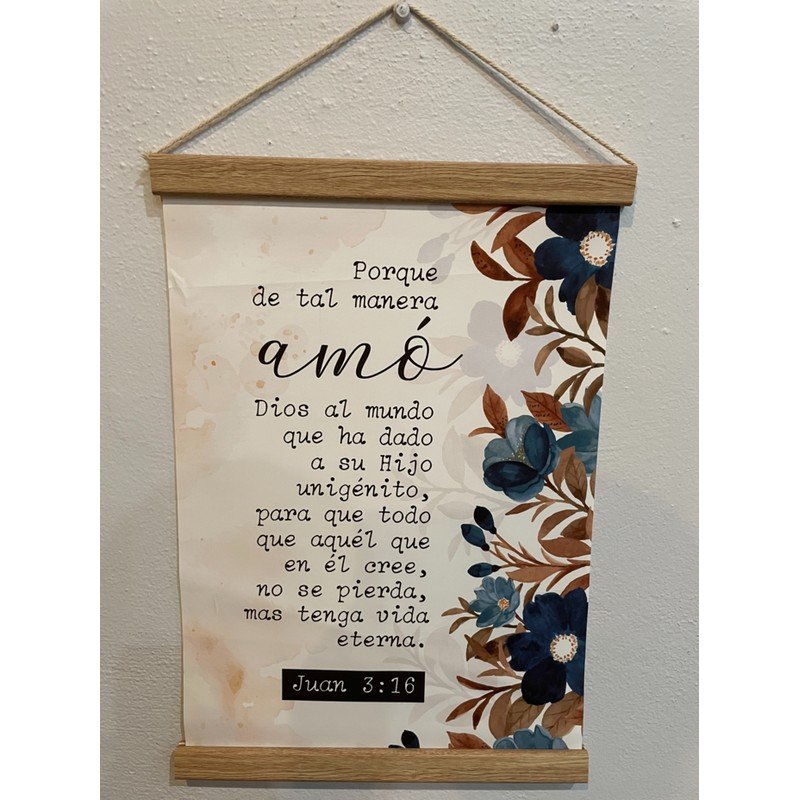 Porque
de tal manera
amó
Dios al mundo
que ha dado
a su Hijo
unigénito,
para que todo
que aquél que
en él cree,
no se pierda,
mas tenga vida
eterna.
Juan 3:16